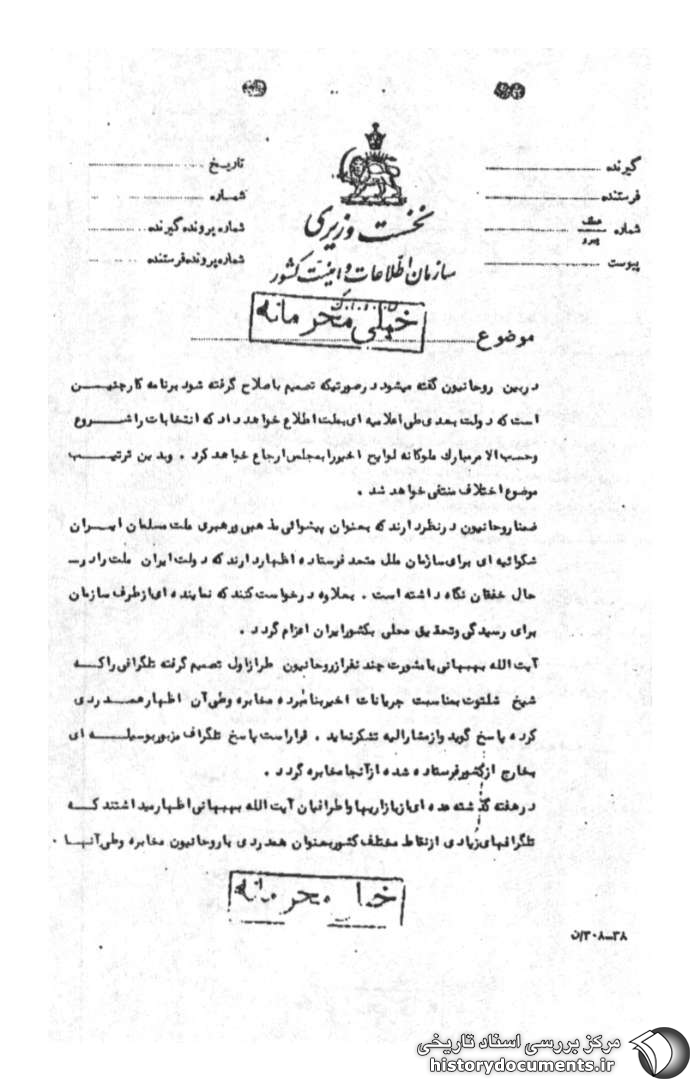 گیرنده
فرستنده
شماره عطف پیرو
پیوست
تاریخ
شماره
شماره پرونده گیرنده
شماره پرونده فرستنده
نخست وزیری
سازمان اطلاعات و امنیت کشور
خیلی محرمانه
موضوع
در بین روحانیون گفته میشود در صورتیکه تصمیم باصلاح گرفته شود برنامه کار چنیــن
است که دولت بعدی طی اعلامیه ای بملت اطلاع خواهد داد که انتخابات را شـــروع
وحسب الامر مبارک ملوکانه لوایح اخیر را بمجلس ارجاع خواهد کرد . وبدین ترتیــب
موضوع اختلاف منتفی خواهد شد .
ضمنا روحانیون در نظر دارند که بعنوان پیشوائی مذهبی ورهبری ملت مسلمان ایــران
شکوائیه ای برای سازمان ملل متحد فرستاده اظهار دارند که دولت ایران ملت را در
حال خفقان نگاه داشته است . بعلاوه درخواست کنند که نماینده ای از طرف سازمان
برای رسیدگی وتحقیق محلی بکشور ایران اعزام گردد .
آیت الله بهبهانی با مشورت چند نفر از روحانیون طراز اول تصمیم گرفته تلگرافی را کــه
شیخ شلتوت بمناسبت جریانات اخیر بنامبرده مخابره وطی آن اظهار همــدردی
کرده پاسخ گوید واز مشارالیه تشکر نماید . قرار است پاسخ تلگراف مزبور بوسیلــه ای
بخارج از کشور فرستاده شده از آنجا مخابره گردد .
در هفته گذشته عده ای از بازاریها واطرافیان آیت الله بهبهانی اظهار میداشتند کــه
تلگرافهای زیادی از نقاط مختلف کشور بعنوان همدردی با روحانیون مخابره وطی آنهــا .
خیلی محرمانه
۳۸-۳۰۸/ن
مرکز بررسی اسناد تاریخی
historydocuments.ir